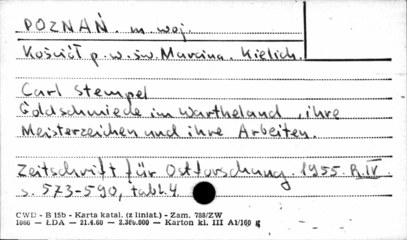 POZNAŃ. m. woj.
Kościół p.w. św. Marcina. Kielich.
Carl Stempel
Goldschmiede im Wartheland, ihre
Meisterzeichen und ihre Arbeiten.
Zeitschrift für Ostforschung. 1955. R.IV.
s. 573-590, tabl. 4
CWD - B 15b - Karta katal. (z liniat.) - Zam. 788/ZW
1066 — ŁDA — 21.4.60 — 2.300.000 — Karton kl. III A1/160 g